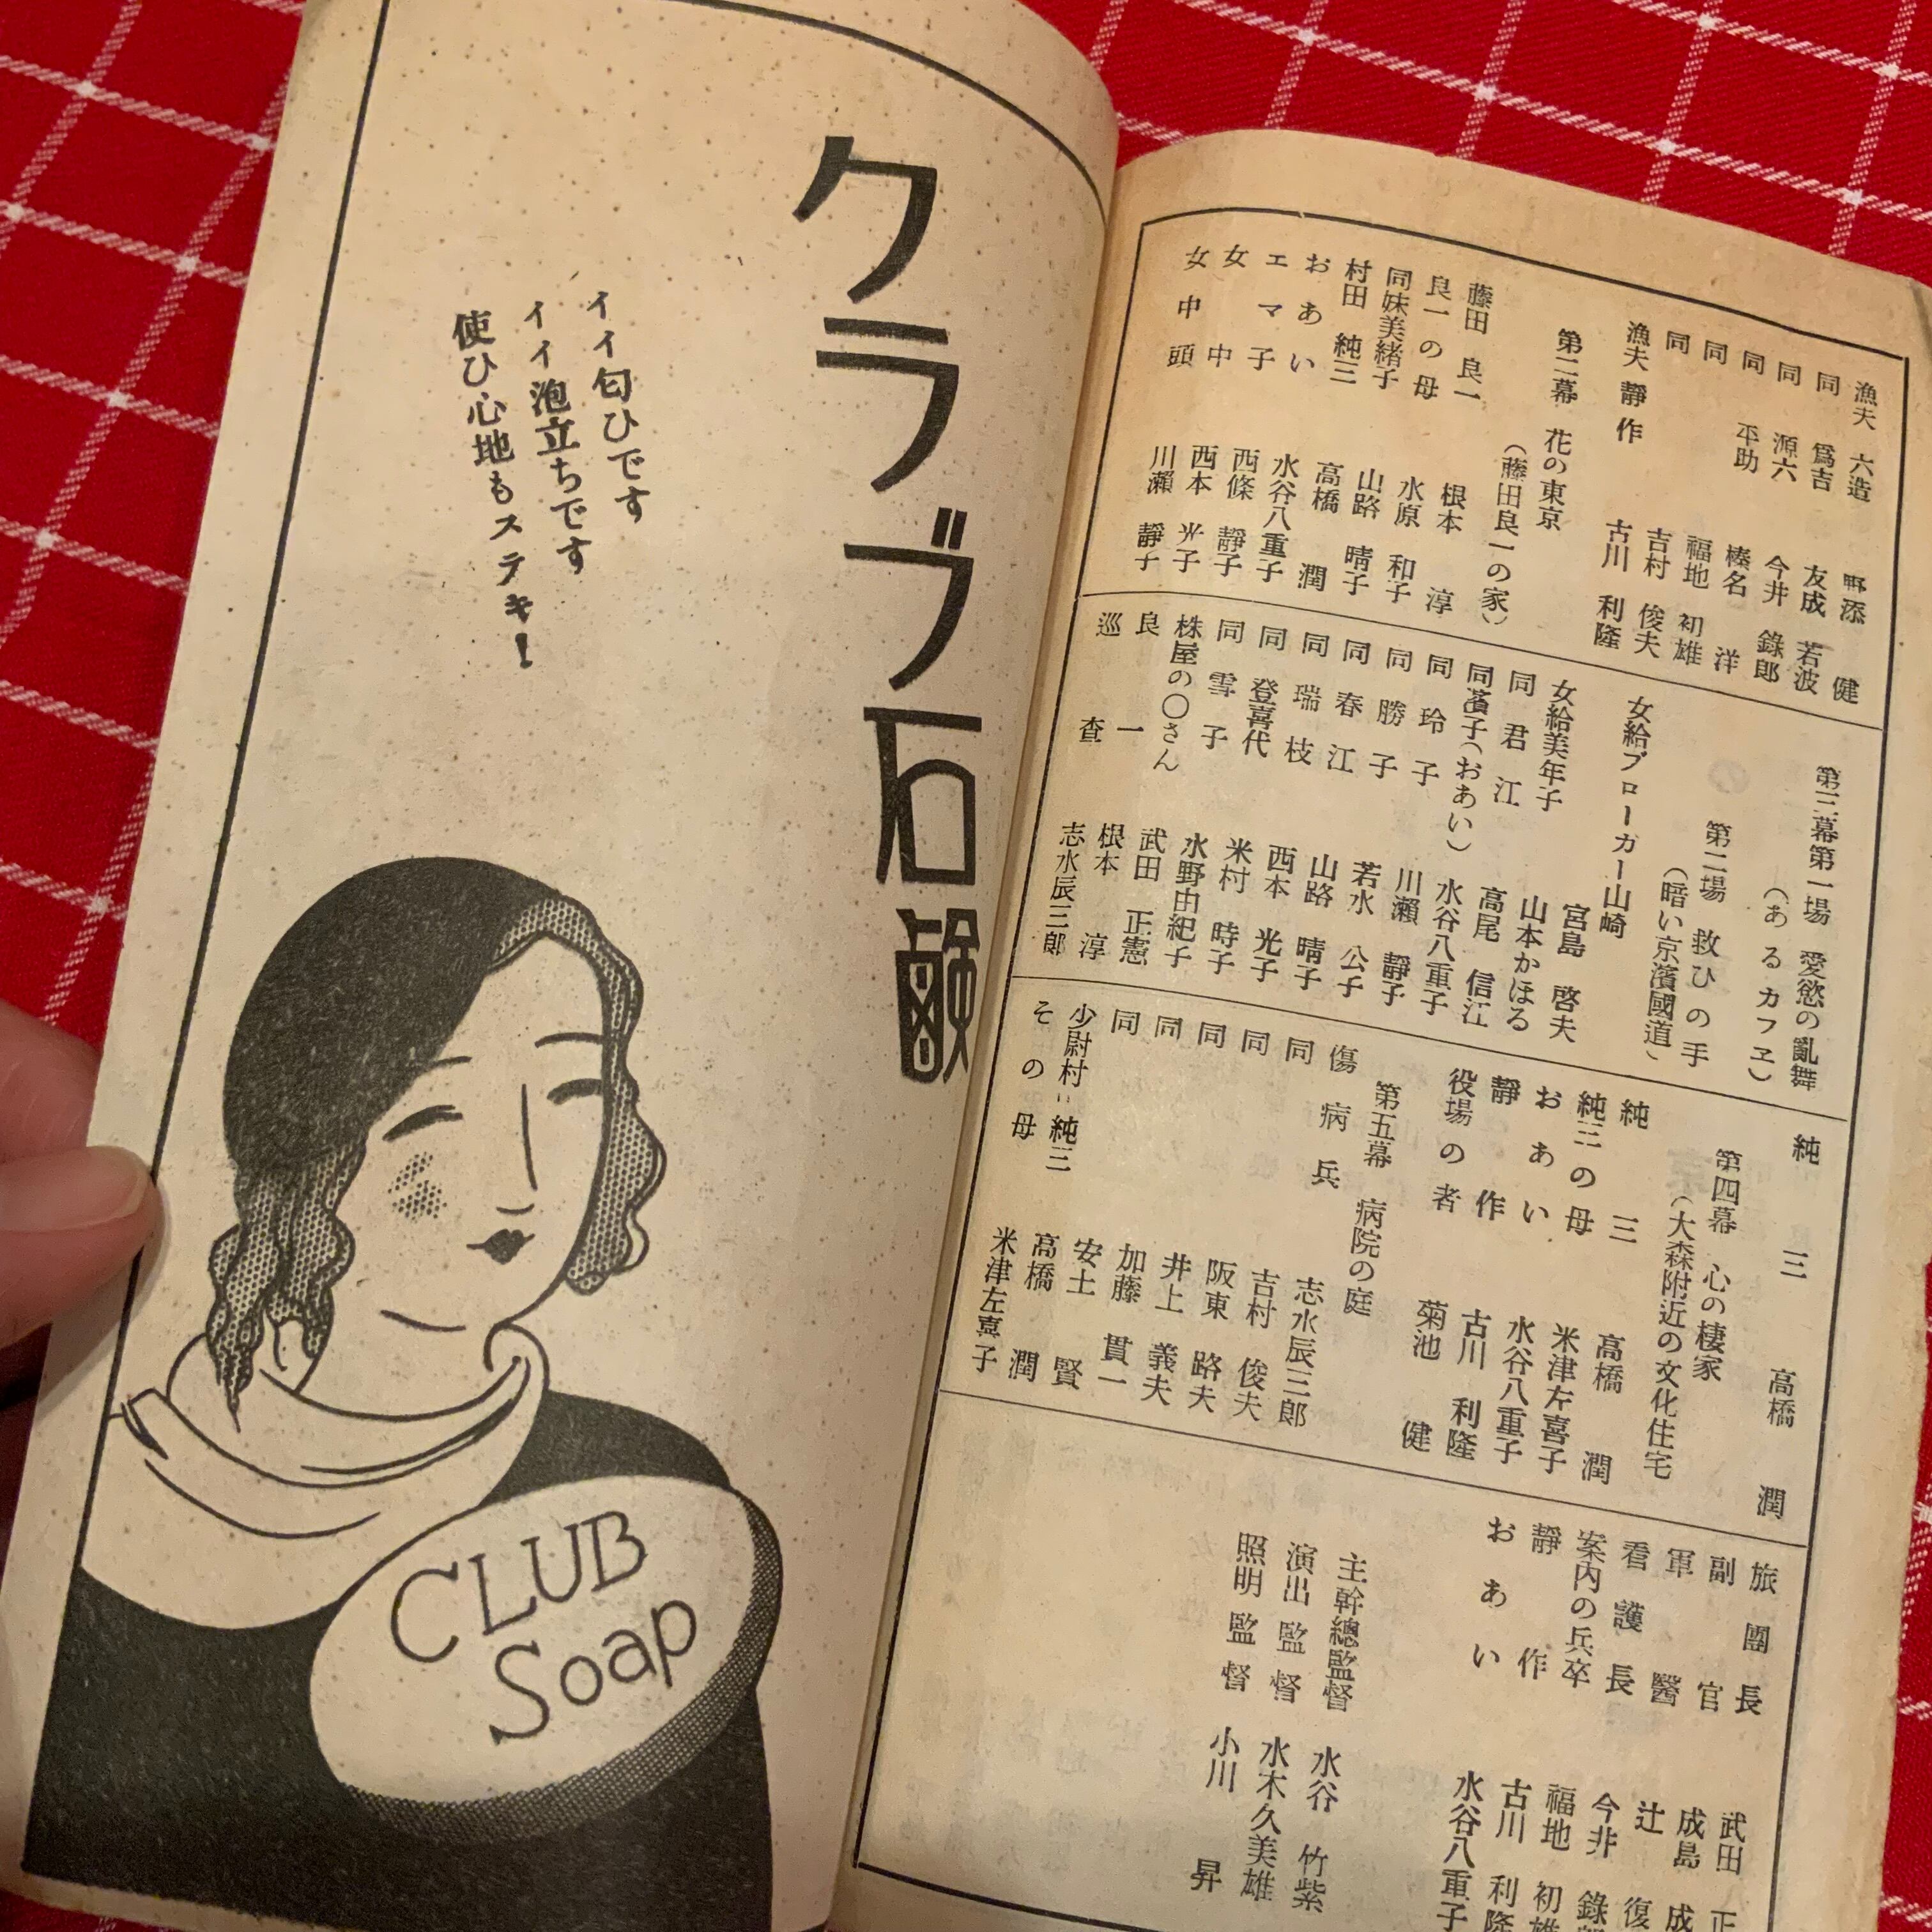 漁夫 六造 野添 健
同 爲吉 友成 若波
同 源六 今井 錄郎
同 平助 榛名 洋
同 福地 初雄
同 吉村 俊夫
漁夫 靜作 古川 利隆
第二幕 花の東京
(藤田良一の家)
藤田 良一 根本 淳
良一の母 水原 和子
同妹美緒子 山路 晴子
村田 純三 高橋 潤
おあい 水谷八重子
エマ子 西條 靜子
女中 西本 光子
女中頭 川瀨 靜子
第三幕第一場 愛慾の亂舞
(あるカフヱ)
第二場 救ひの手
(暗い京濱國道)
女給ブローガー山崎 宮島 啓夫
女給美年子 山本かほる
同 君江 高尾 信江
同濱子(おあい) 水谷八重子
同 玲子 川瀨 靜子
同 勝子 若水 公子
同 春江 山路 晴子
同 瑞枝 西本 光子
同 登喜代 米村 時子
同 雪子 水野由紀子
株屋の〇さん 武田 正憲
良一 根本 淳
巡査 志水辰三郎
純三 高橋 潤
第四幕 心の棲家
(大森附近の文化住宅
純三 高橋 潤
純三の母 米津左喜子
おあい 水谷八重子
靜作 古川 利隆
役場の者 菊池 健
第五幕 病院の庭
傷病兵 志水辰三郎
同 吉村 俊夫
同 阪東 路夫
同 井上 義夫
同 加藤 貫一
同 安士 賢
少尉村 純三 高橋 潤
その母 米津左喜子
旅團長 武田 正
副官 成島 成
軍醫 辻 復
看護長 今井 錄
案内の兵卒 福地 初雄
靜作 古川 利隆
おあい 水谷八重子
主幹總監督 水谷 竹紫
演出監督 水木久美雄
照明監督 小川 昇
クラブ石鹸
イイ匂ひです
イイ泡立ちです
使ひ心地もステキ!
CLUB
Soap